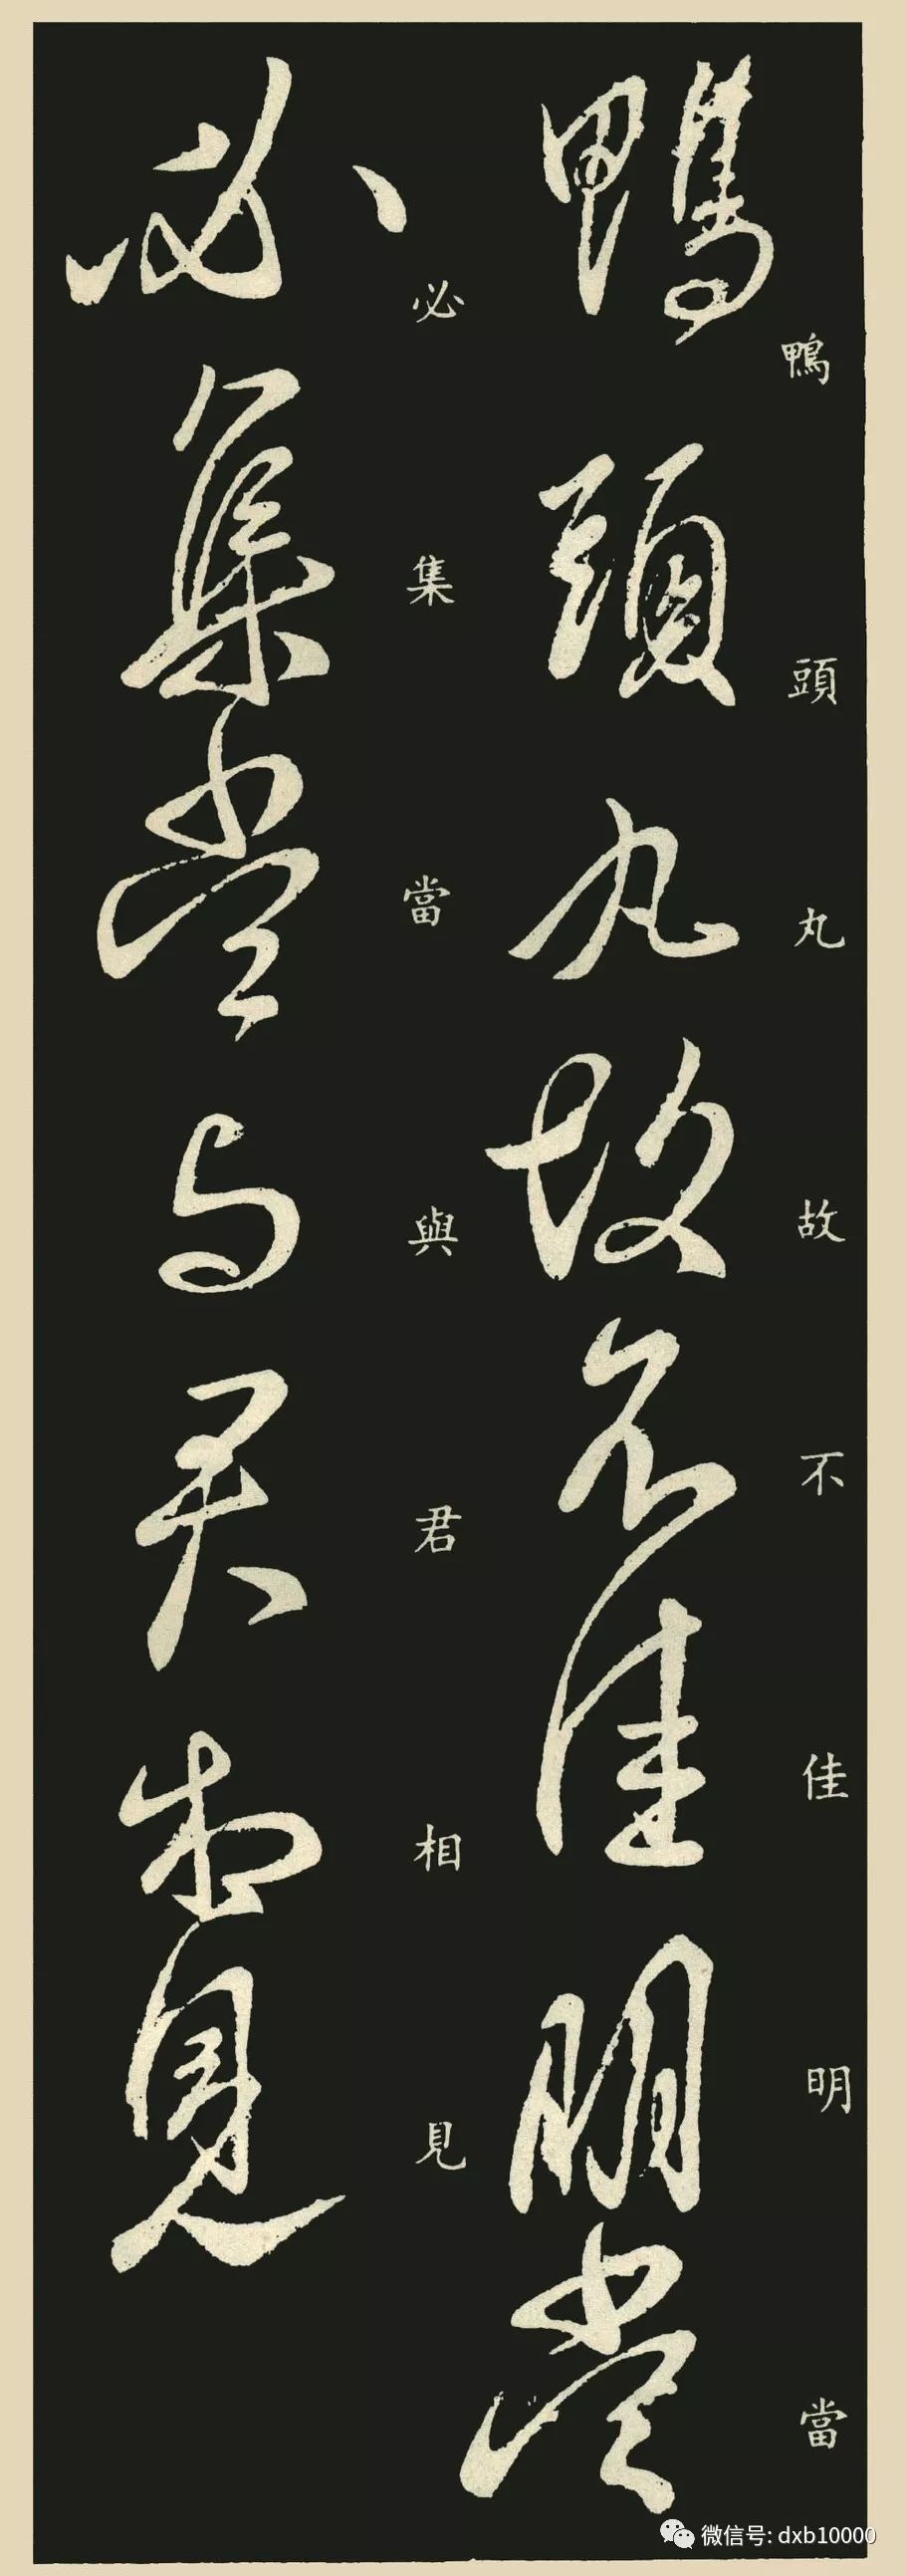 鴨頭丸故不佳明當
必集當與君相見
鴨頭丸故不佳明當
必集當與君相見
微信号: dxb10000